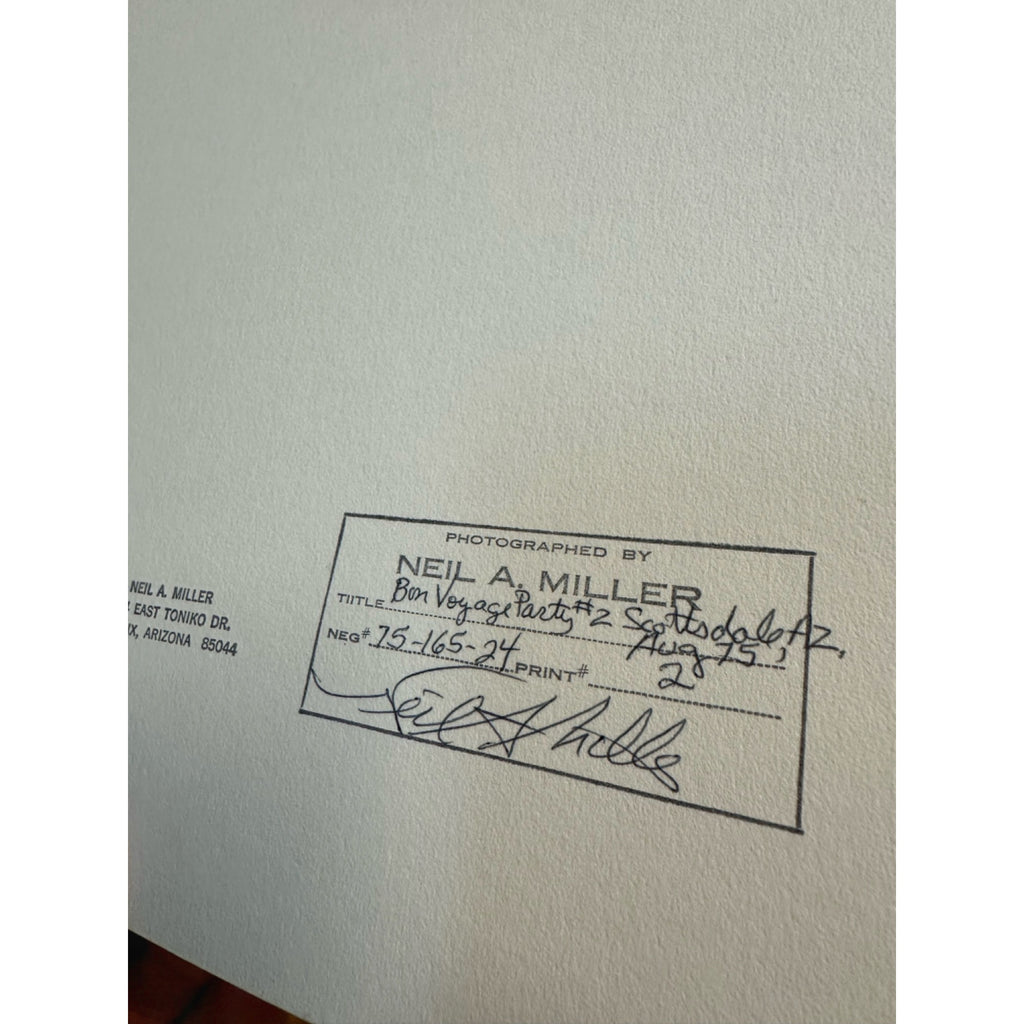 NEIL A. MILLER
EAST TONIKO DR.
X, ARIZONA 85044
PHOTOGRAPHED BY
NEIL A. MILLER
TIITLE Bon Voyage Party #2 Scottsdale AZ,
Aug 75,
NEG# 75-165-24 PRINT# 2
Neil A Miller